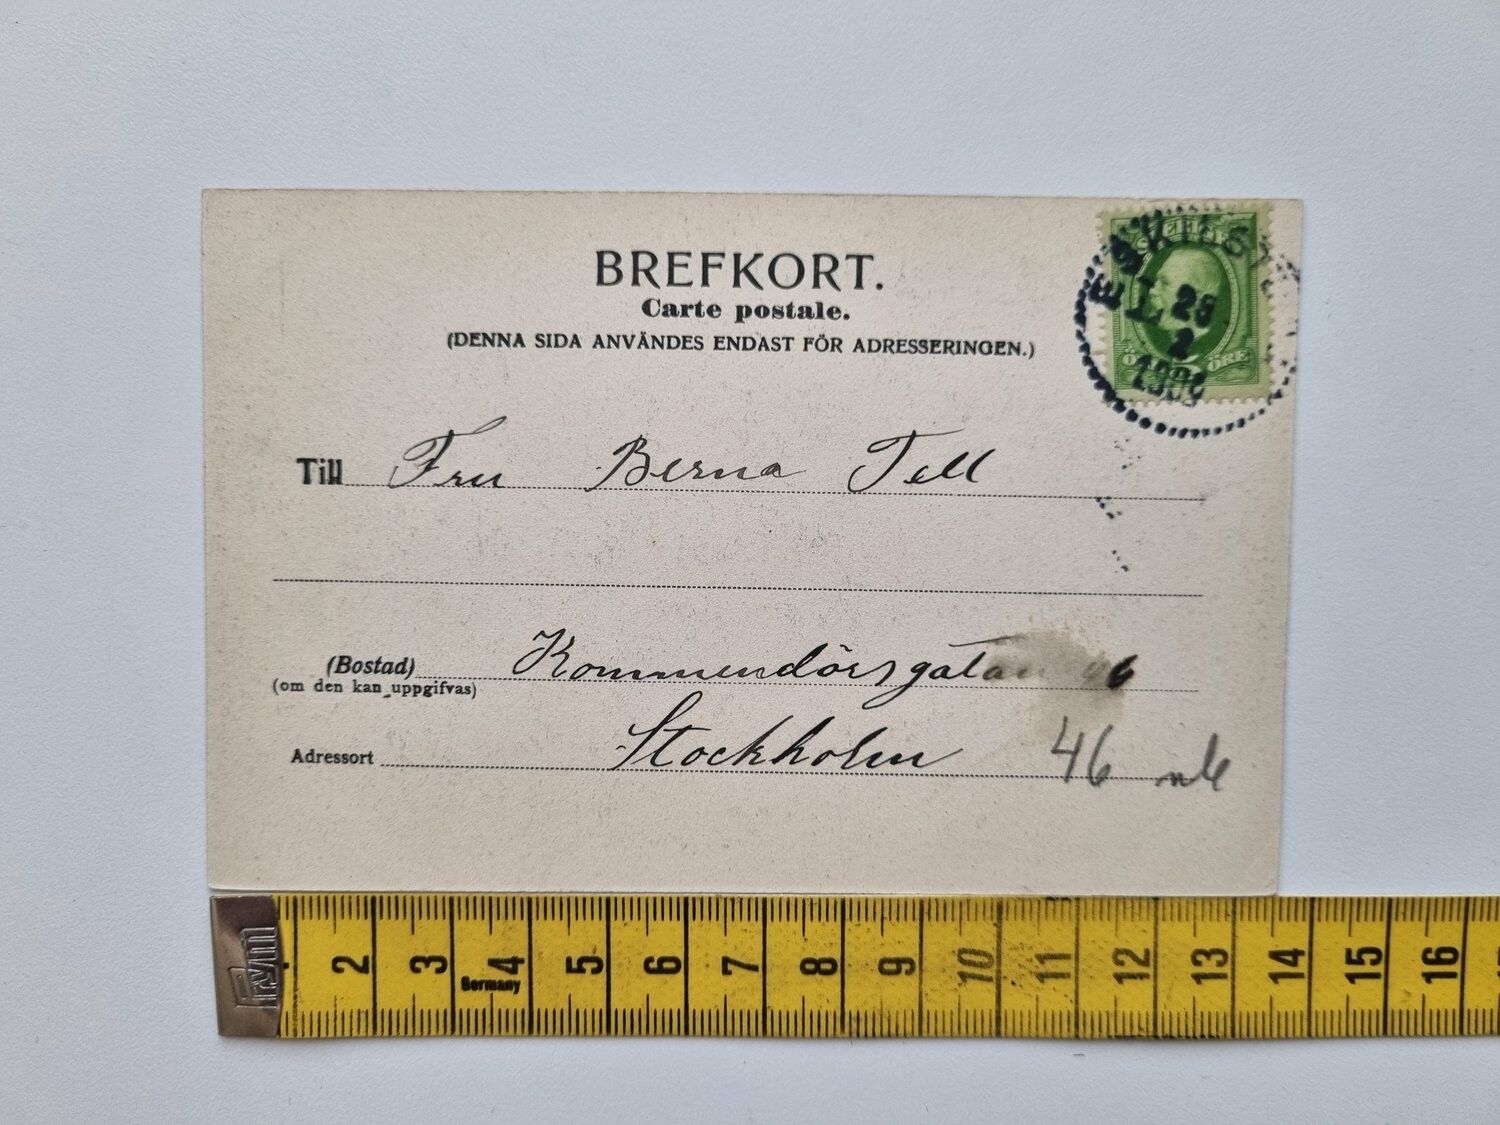 BREFKORT.
Carte postale.
(DENNA SIDA ANVÄNDES ENDAST FÖR ADRESSERINGEN.)
28
2
ÖRE
Till Fru Berna Tell
(Bostad) Kommendörsgatan 46
(om den kan uppgifvas)
Adressort Stockholm 46
Prym
2 3 4 5 6 7 8 9 10 11 12 13 14 15 16
Germany